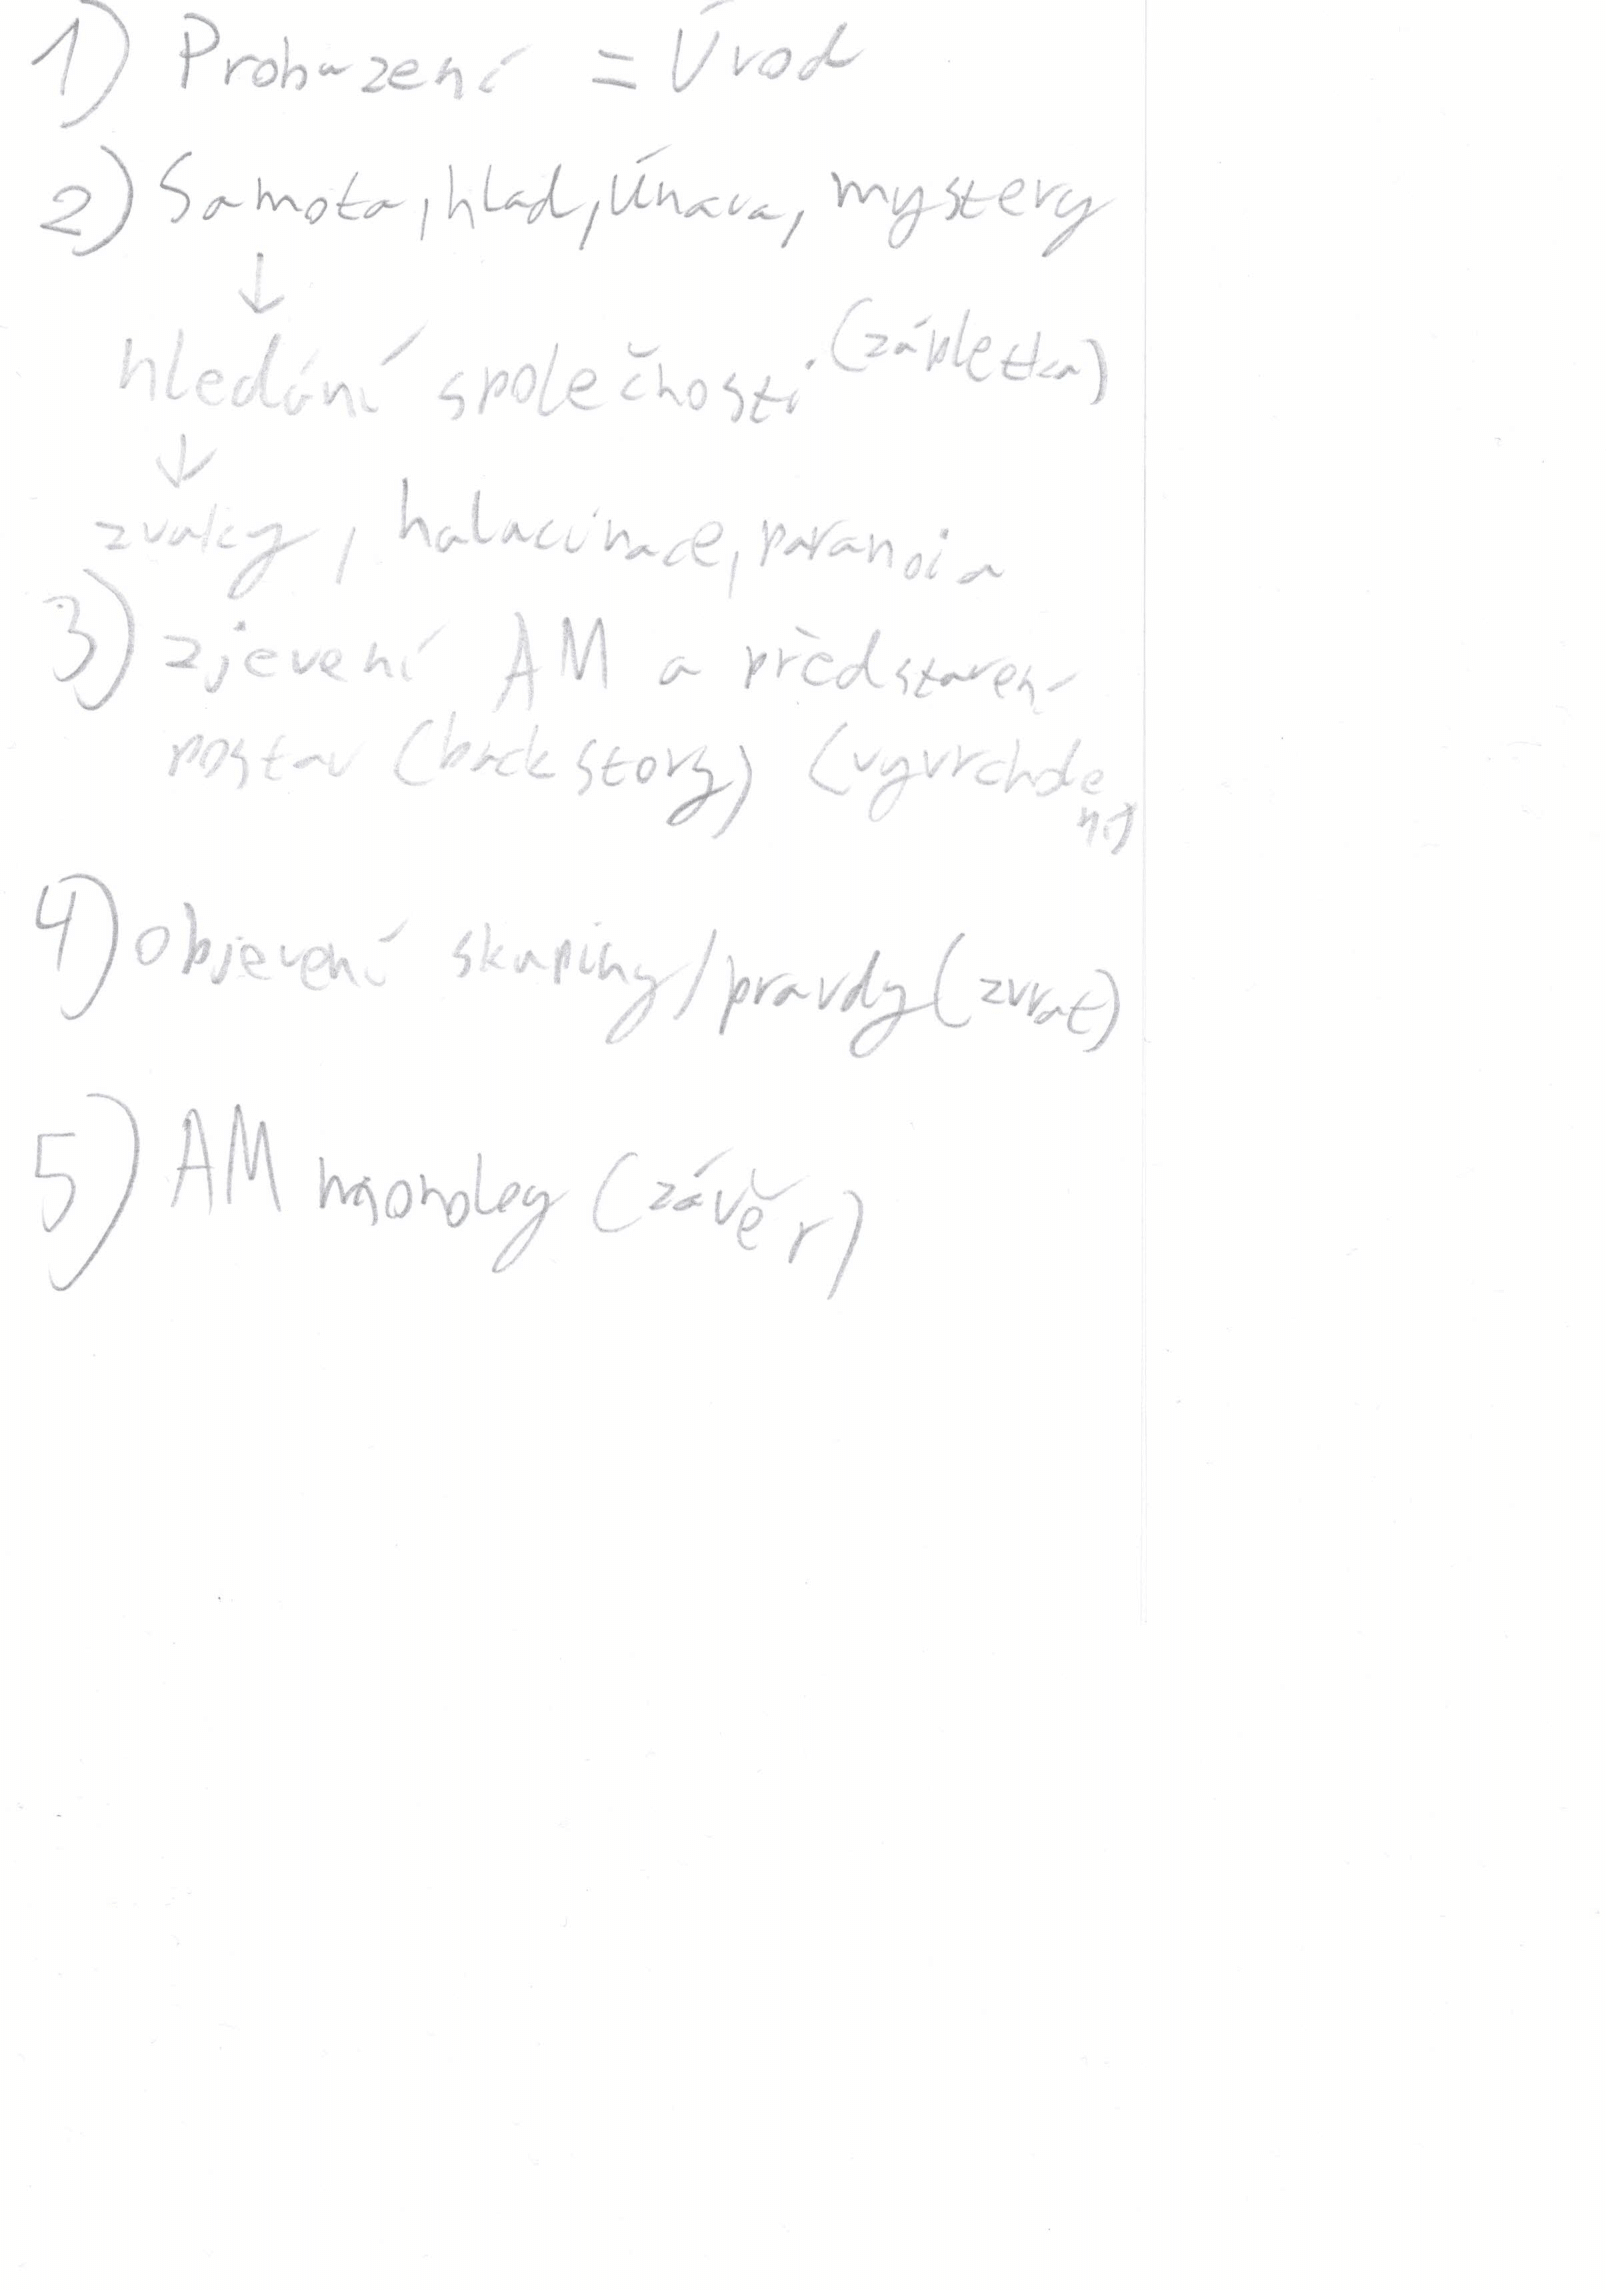 1) Probuzení = Úvod
2) Samota, hlad, únava, mystery
↓
hledání společnosti (zápletka)
↓
zvuky, halucinace, paranoia
3) zjevení AM a představen-
postav (backstory) (vyvrchole
ní)
4) objevení skupiny/pravdy (zvrat)
5) AM monolog (závěr)